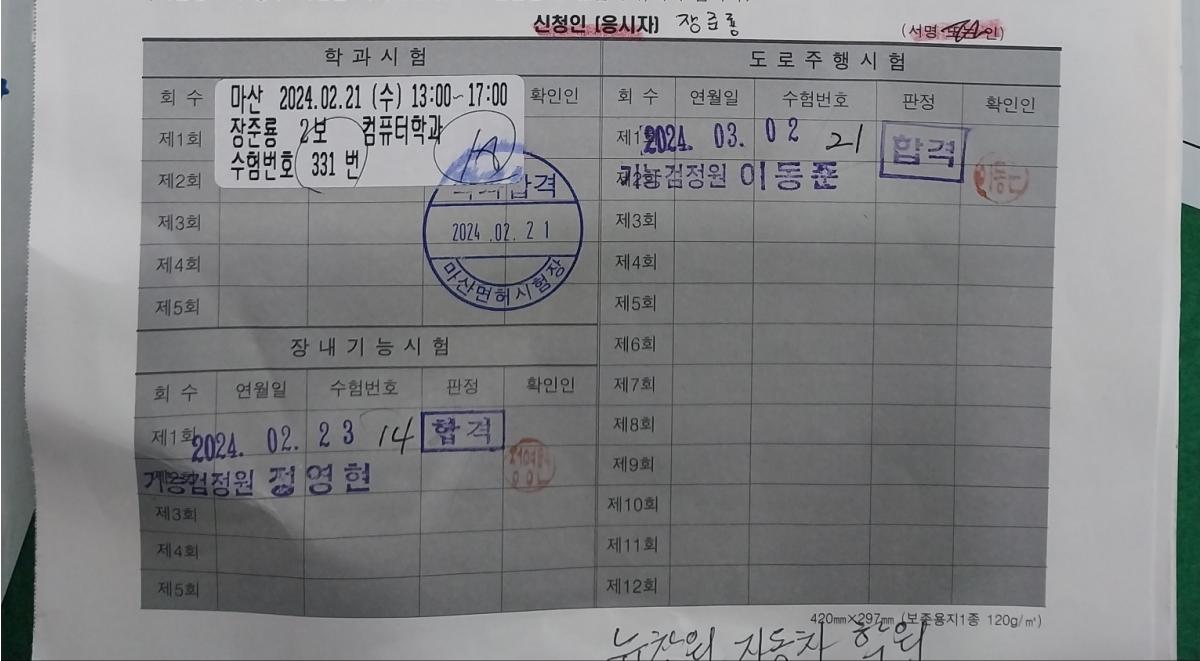 신청인 (응시자) 장준룡 (서명 또는 인)
학과시험
회 수
확인인
마산 2024.02.21 (수) 13:00~17:00
장준룡 2보 컴퓨터학과
수험번호 331 번
제1회
제2회
합격
2024.02.21
마산면허시험장
제3회
제4회
제5회
장내기능시험
회 수 연월일 수험번호 판정 확인인
제1회 2024. 02. 23 14 합격
기능검정원 정영현
제3회
제4회
제5회
도로주행시험
회 수 연월일 수험번호 판정 확인인
제1 2024. 03. 02 21 합격
기능검정원 이동준
제3회
제4회
제5회
제6회
제7회
제8회
제9회
제10회
제11회
제12회
420㎜×297㎜ (보존용지1종 120g/㎡)
뉴창원 자동차 학원